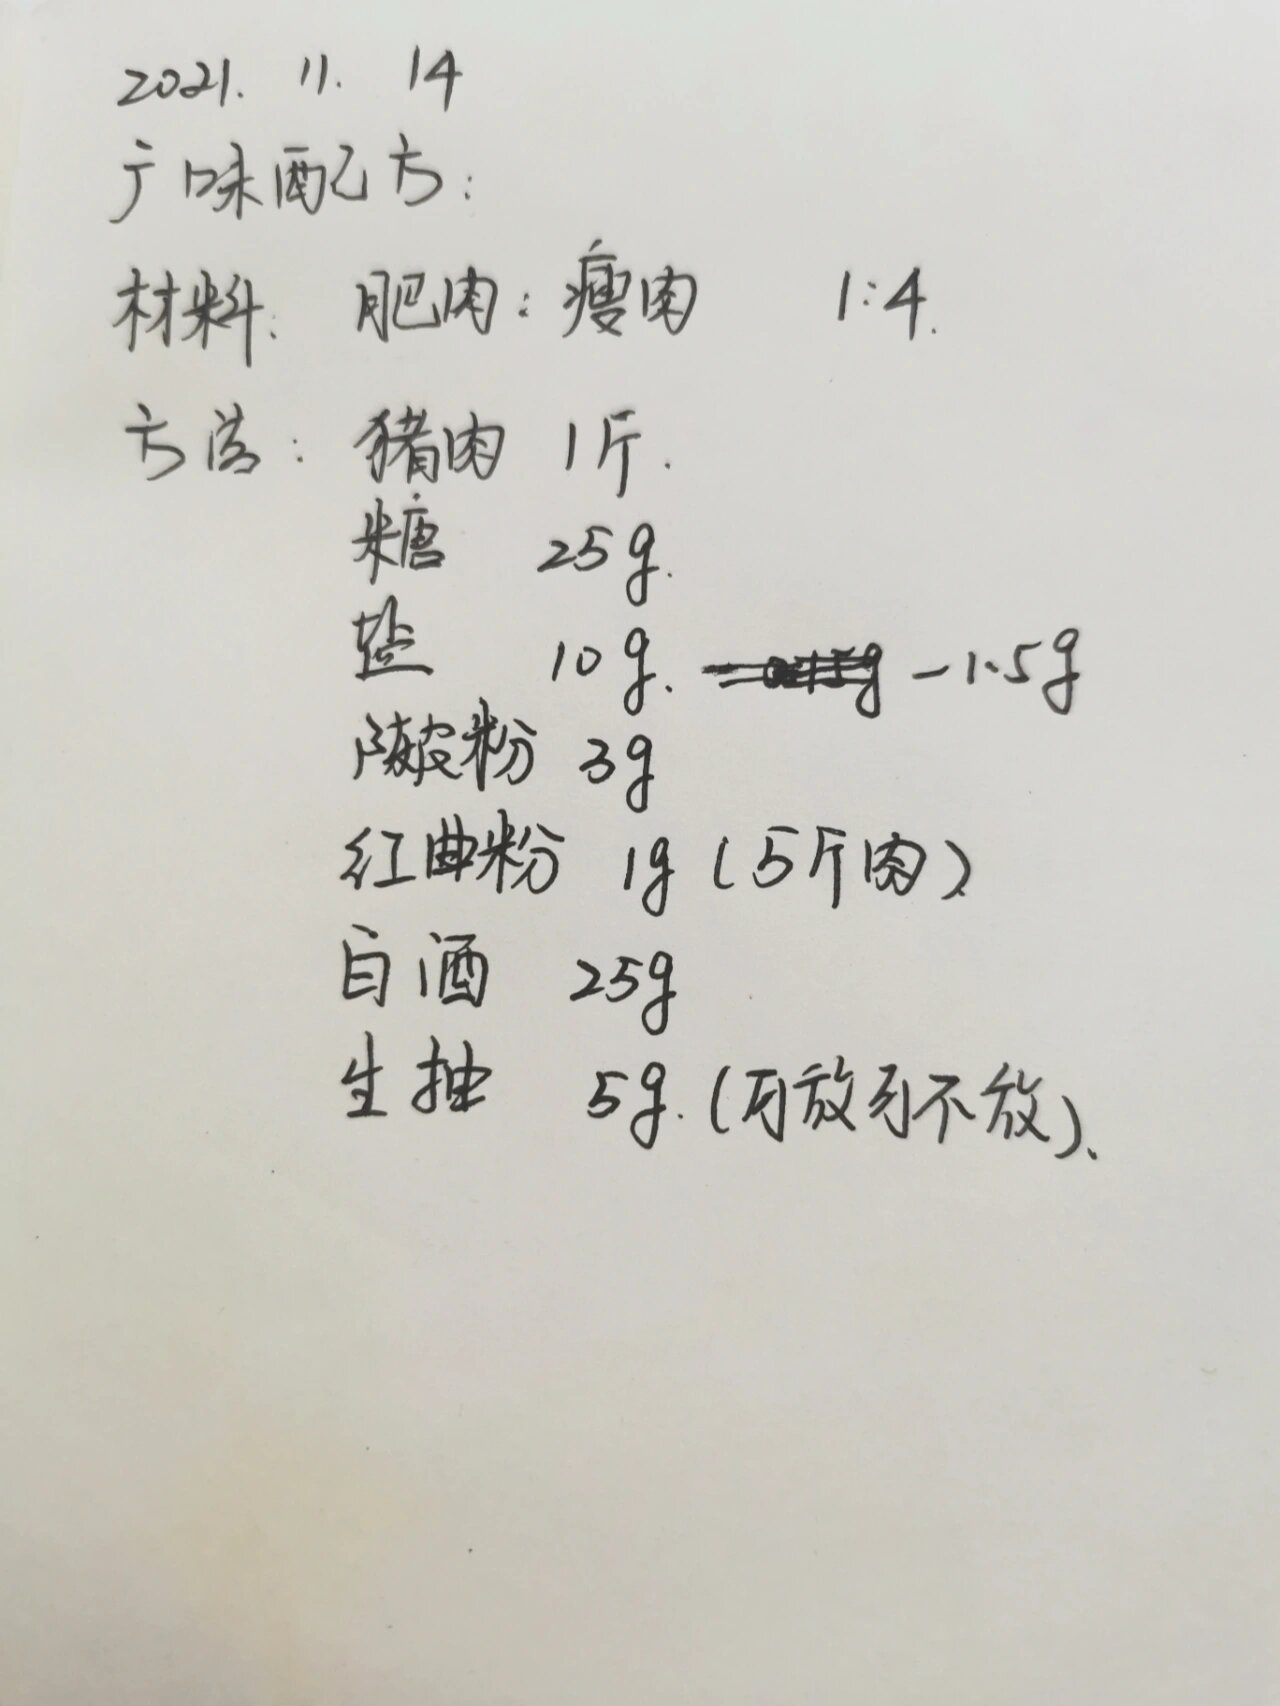 2021. 11. 14
广味配方:
材料: 肥肉:瘦肉 1:4.
方法: 猪肉 1斤.
糖 25g.
盐 10g. -1.5g
陈皮粉 3g
红曲粉 1g (5斤肉)
白酒 25g
生抽 5g. (可放可不放).